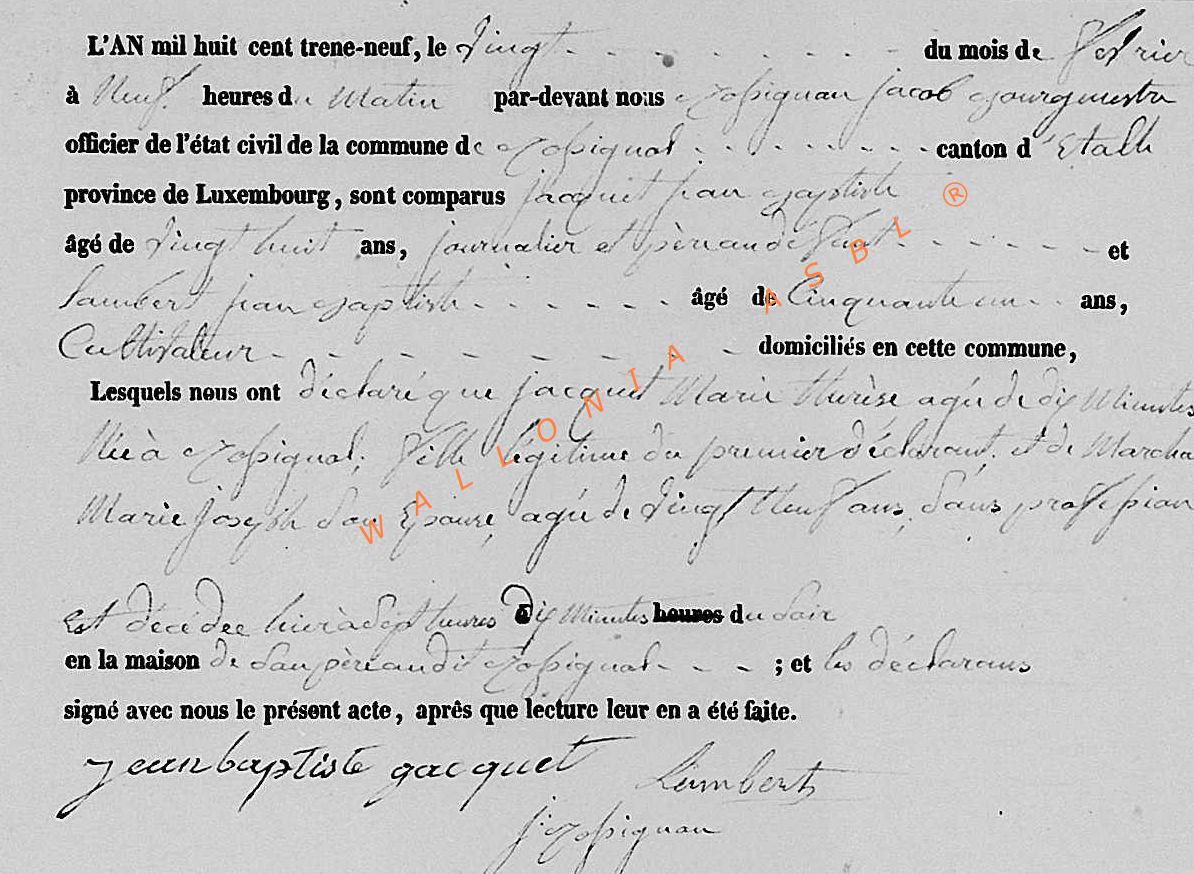 L'AN mil huit cent trene-neuf, le vingt du mois de fevrier
à Neuf heures du Matin par-devant nous Rossignon jacob Bourgmestre
officier de l'état civil de la commune de Rossignol canton d'Etalle
province de Luxembourg, sont comparus jacquet jean Baptiste
âgé de vingt huit ans, journalier et père au défunt et
Lambert jean Baptiste âgé de Cinquante un ans,
Cultivateur domiciliés en cette commune,
Lesquels nous ont déclaré que jacquet Marie thérèse agée de dix Minutes
Née à Rossignol, fille légitime du premier déclarant, et de Marcha
Marie joseph son Epouse, agée de vingt Neuf ans, sans profession
est décédée hier à sept heures dix Minutes heures du soir
en la maison de son père audit Rossignol ; et les déclarans
signé avec nous le présent acte, après que lecture leur en a été faite.
jean baptiste jacquet Lambert
j: Rossignon
WALLONIA ASBL ®